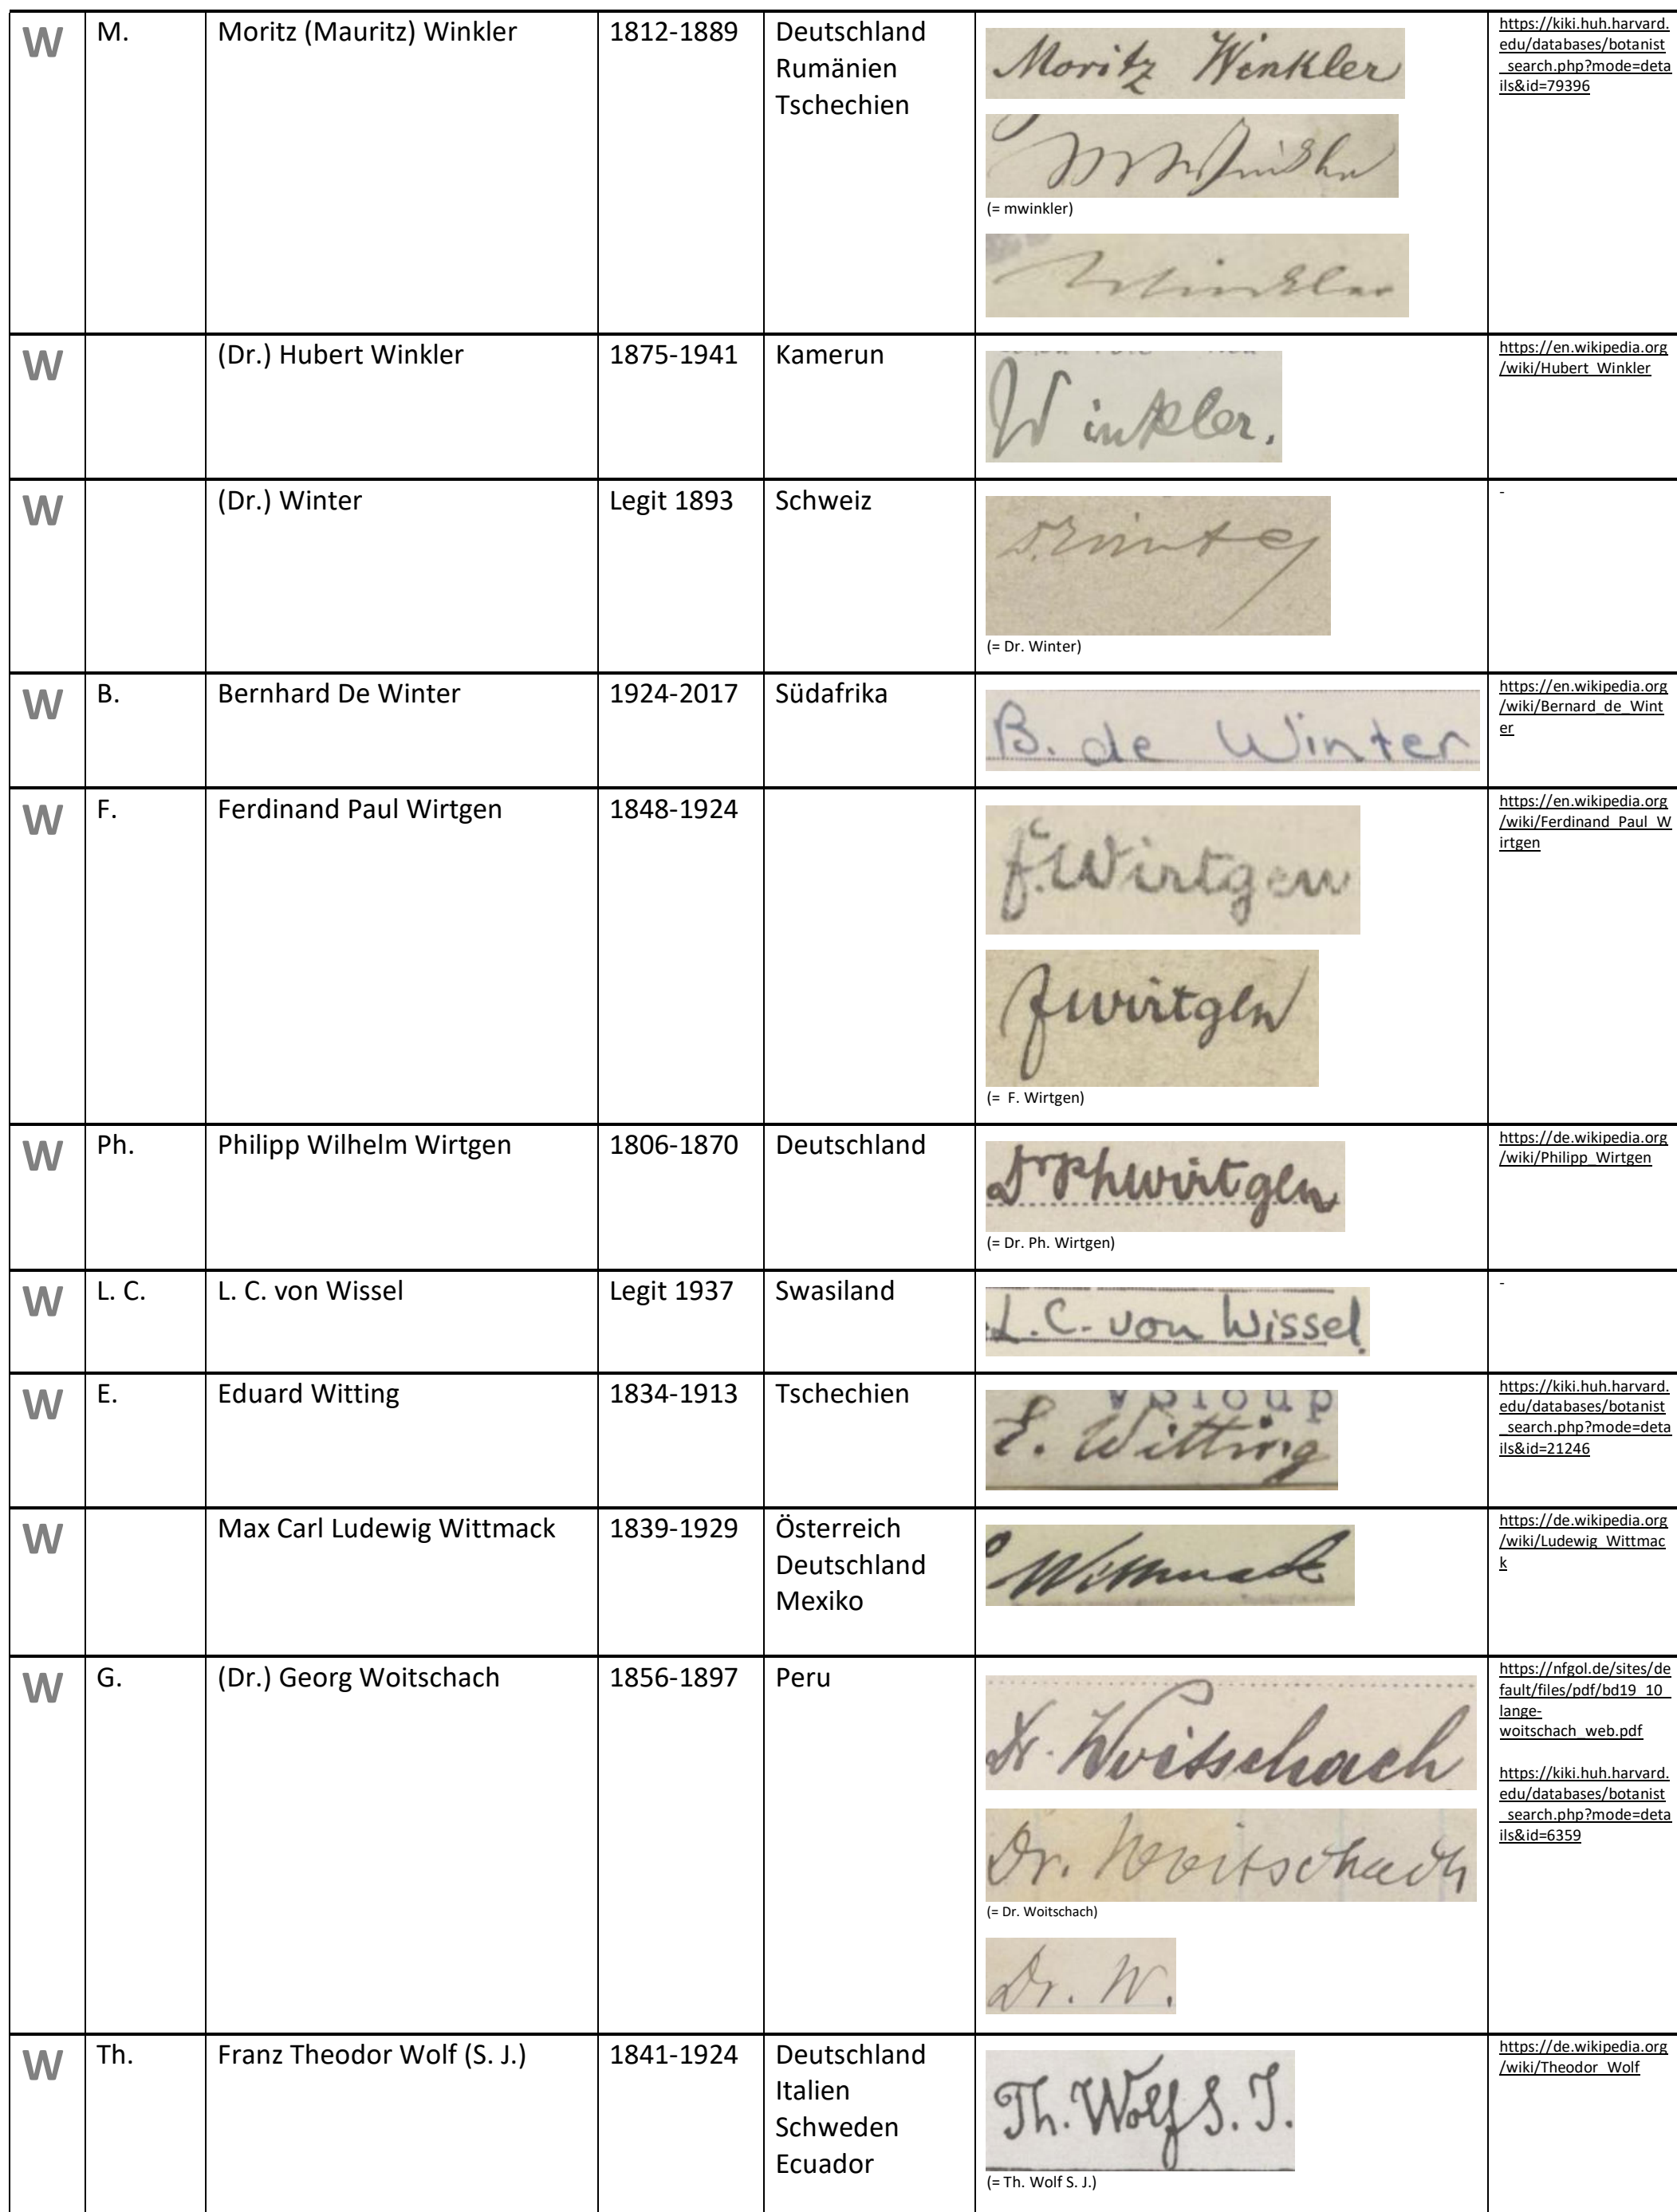 W M. Moritz (Mauritz) Winkler 1812-1889 Deutschland
Rumänien
Tschechien
Moritz Winkler
(= mwinkler)
Winkler
https://kiki.huh.harvard.
edu/databases/botanist
_search.php?mode=deta
ils&id=79396
W (Dr.) Hubert Winkler 1875-1941 Kamerun
Winkler.
https://en.wikipedia.org
/wiki/Hubert_Winkler
W (Dr.) Winter Legit 1893 Schweiz
Dr. Winter
(= Dr. Winter)
-
W B. Bernhard De Winter 1924-2017 Südafrika
B. de Winter
https://en.wikipedia.org
/wiki/Bernard_de_Wint
er
W F. Ferdinand Paul Wirtgen 1848-1924
F. Wirtgen
FWirtgen
(= F. Wirtgen)
https://en.wikipedia.org
/wiki/Ferdinand_Paul_W
irtgen
W Ph. Philipp Wilhelm Wirtgen 1806-1870 Deutschland
Dr Ph Wirtgen
(= Dr. Ph. Wirtgen)
https://de.wikipedia.org
/wiki/Philipp_Wirtgen
W L. C. L. C. von Wissel Legit 1937 Swasiland
L. C. von Wissel
-
W E. Eduard Witting 1834-1913 Tschechien
E. Witting
https://kiki.huh.harvard.
edu/databases/botanist
_search.php?mode=deta
ils&id=21246
W Max Carl Ludewig Wittmack 1839-1929 Österreich
Deutschland
Mexiko
Wittmack
https://de.wikipedia.org
/wiki/Ludewig_Wittmac
k
W G. (Dr.) Georg Woitschach 1856-1897 Peru
Dr. Woitschach
Dr. Woitschach
(= Dr. Woitschach)
Dr. W.
https://nfgol.de/sites/de
fault/files/pdf/bd19_10_
lange-
woitschach_web.pdf
https://kiki.huh.harvard.
edu/databases/botanist
_search.php?mode=deta
ils&id=6359
W Th. Franz Theodor Wolf (S. J.) 1841-1924 Deutschland
Italien
Schweden
Ecuador
Th. Wolf S. J.
(= Th. Wolf S. J.)
https://de.wikipedia.org
/wiki/Theodor_Wolf